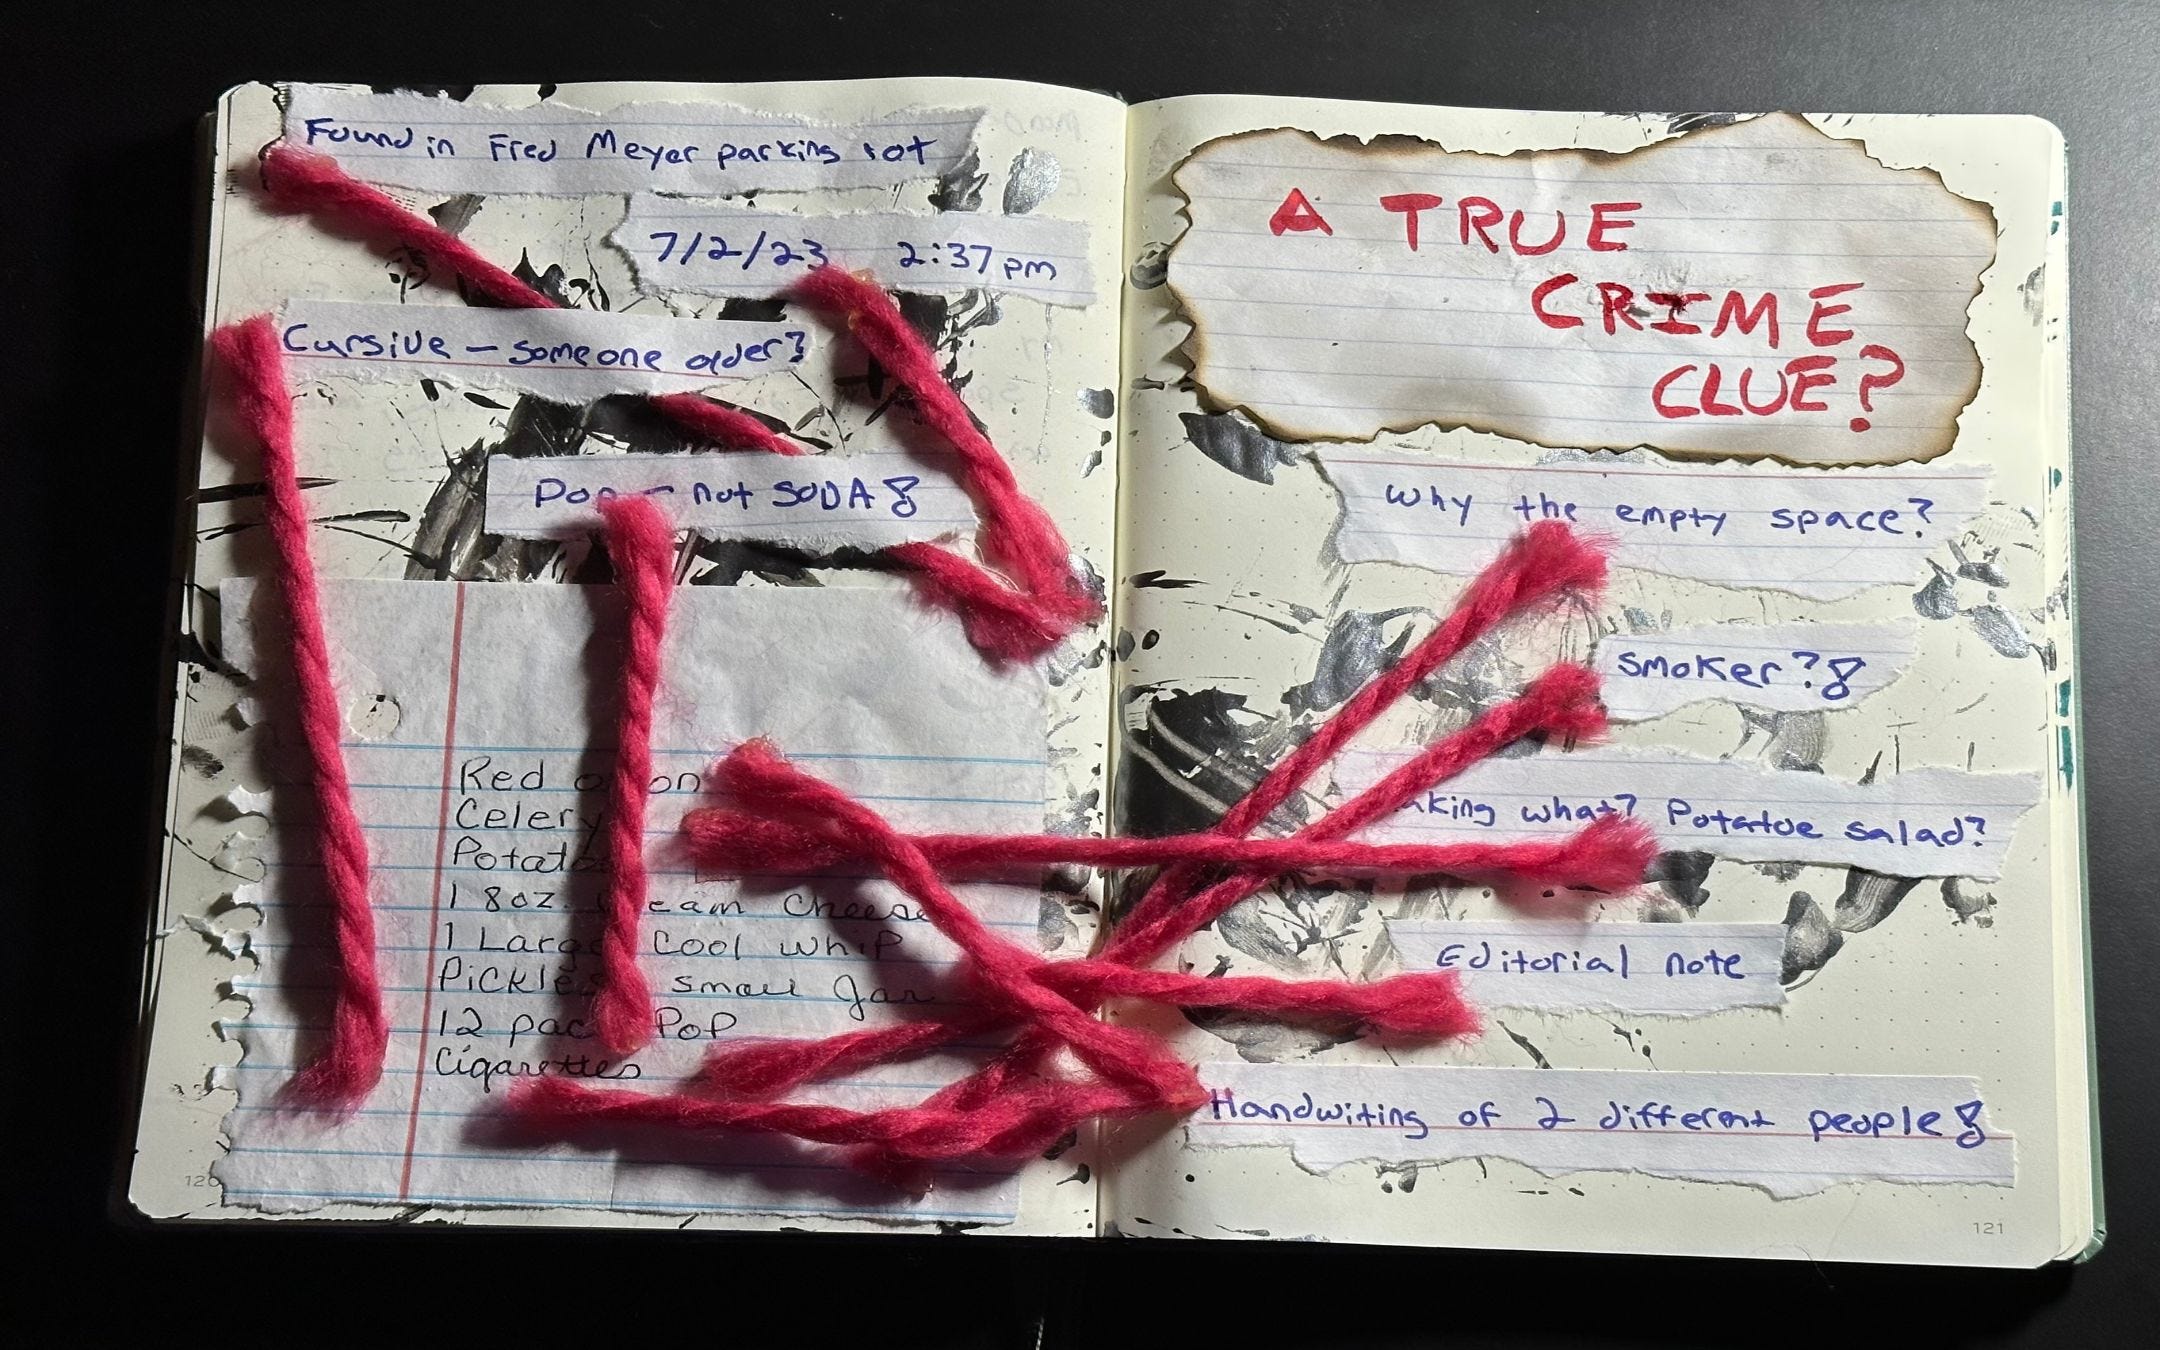 Found in Fred Meyer parking lot
7/2/23 2:37pm
Cursive - someone older?
Pop - not SODA!
Red onion
Celery
Potato
1 8oz. Cream Cheese
1 Large Cool whip
Pickles small Jar
12 pack Pop
Cigarettes
120
A TRUE
CRIME
CLUE?
Why the empty space?
Smoker?!
what? Potatoe salad?
Editorial note
Handwiting of 2 different people!
121